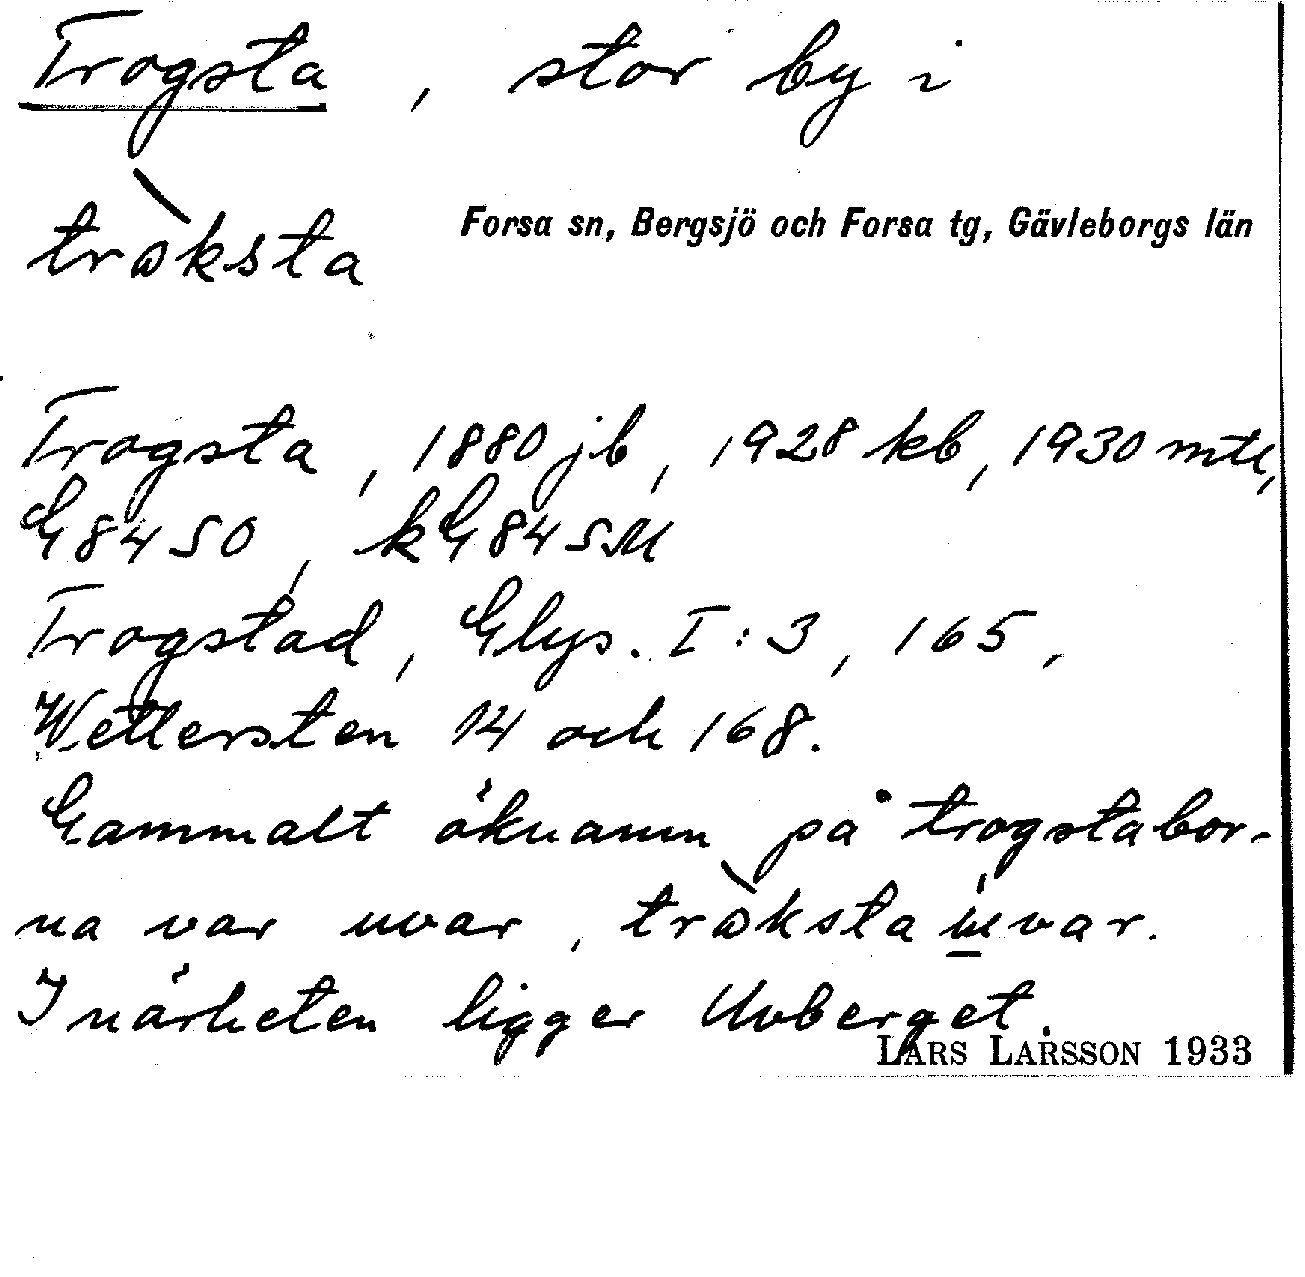 Trogsta, stor by i
tròksta Forsa sn, Bergsjö och Forsa tg, Gävleborgs län
Trogsta, 1880 jb, 1928 kb, 1930 mtl,
G84SO, kG84SM
Trogstad, Glys. I:3, 165,
Wettersten 14 och 168.
Gammalt öknamn på trogstabor-
na var uvar, tròksta úvar.
I närheten ligger Uvberget.
LARS LARSSON 1933